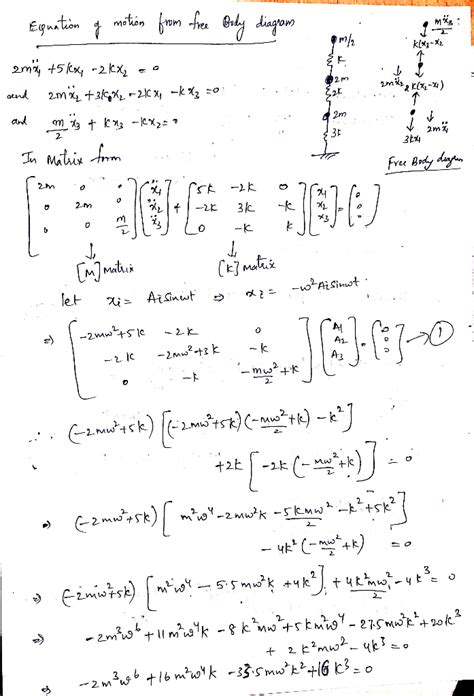 Equation of motion from free Body diagram
2mẍ₁ + 5kx₁ - 2kx₂ = 0
and 2mẍ₂ + 3kx₂ - 2kx₁ - kx₃ = 0
and m/2 ẍ₃ + kx₃ - kx₂ = 0
m/2
k
2m
2k
2m
3k
mẍ₃/2
k(x₃-x₂)
2mẍ₂
2k(x₂-x₁)
3kx₁
2mẍ₁
Free Body diagram
In Matrix form
[2m 0 0; 0 2m 0; 0 0 m/2] [ẍ₁; ẍ₂; ẍ₃] + [5k -2k 0; -2k 3k -k; 0 -k k] [x₁; x₂; x₃] = [0; 0; 0]
[M] matrix
[K] matrix
let xᵢ = Aᵢsinωt ⇒ ẍᵢ = -ω²Aᵢsinωt
⇒ [-2mω²+5k -2k 0; -2k -2mω²+3k -k; 0 -k -mω²/2+k] [A₁; A₂; A₃] = [0; 0; 0] → ①
∴ (-2mω²+5k) [(-2mω²+5k)(-mω²/2+k) - k²]
+2k [-2k(-mω²/2+k)] = 0
⇒ (-2mω²+5k) [m²ω⁴ - 2mω²k - 5kmω²/2 - k² + 5k²]
- 4k²(-mω²/2+k) = 0
⇒ (-2mω²+5k) [m²ω⁴ - 5.5mω²k + 4k²] + 4k²mω²/2 - 4k³ = 0
⇒ -2m³ω⁶ + 11m²ω⁴k - 8k²mω² + 5km²ω⁴ - 27.5mω²k² + 20k³
+ 2k²mω² - 4k³ = 0
⇒ -2m³ω⁶ + 16m²ω⁴k - 33.5mω²k² + 16k³ = 0